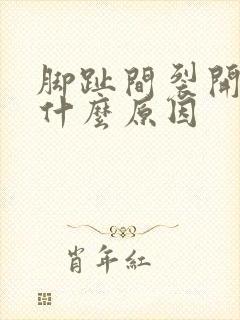 脚趾間裂開
什麼原因
肖年紅